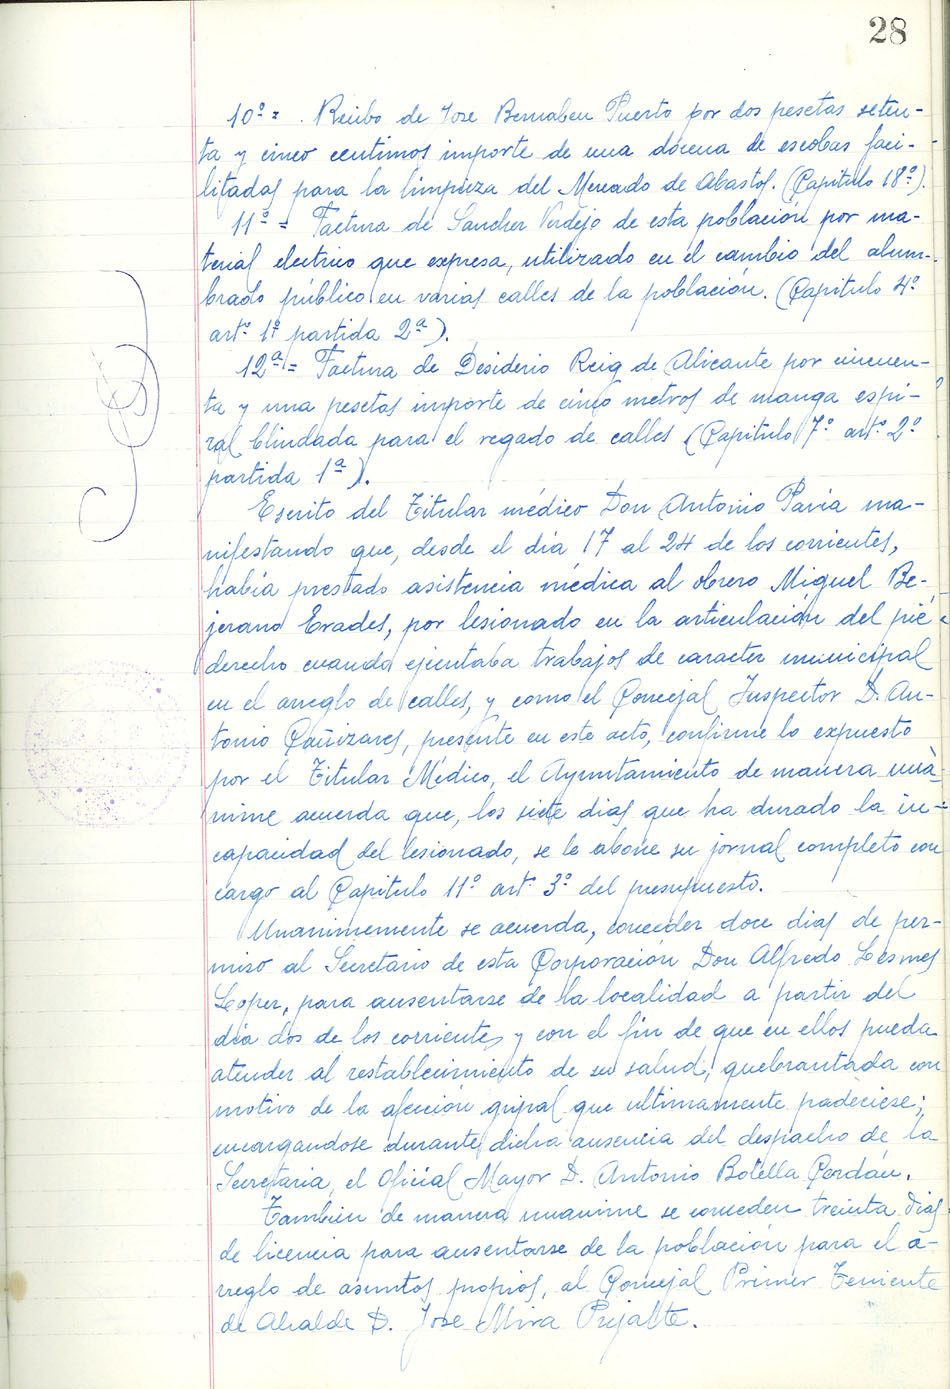 28
10º = . Recibo de Jose Bernabeu Puerto por dos pesetas seten-
ta y cinco centimos importe de una docena de escobas faci-
litadas para la limpieza del Mercado de Abastos. (Capitulo 18º).
11º = Factura de Sanchez Verdejo de esta población por ma-
terial electrico que expresa, utilizado en el cambio del alum-
brado público en varias calles de la población. (Capitulo 4º
artº 1º partida 2ª).
12ª = Factura de Desiderio Reig de Alicante por cincuen-
ta y una pesetas importe de cinco metros de manga espi-
ral blindada para el regado de calles (Capitulo 7º artº 2º
partida 1ª).
Escrito del Titular médico Don Antonio Pavia ma-
nifestando que, desde el día 17 al 24 de los corrientes,
había prestado asistencia médica al obrero Miguel Be-
jerano Erades, por lesionado en la articulación del pié
derecho cuando ejecutaba trabajos de caracter municipal
en el arreglo de calles, y como el Concejal Inspector D. An-
tonio Cañizares, presente en este acto, confirme lo expuesto
por el Titular Médico, el Ayuntamiento de manera uná-
nime acuerda que, los siete dias que ha durado la in-
capacidad del lesionado, se le abone su jornal completo con
cargo al Capitulo 11º artº 3º del presupuesto.
Unanimemente se acuerda, conceder doce dias de per-
miso al Secretario de esta Corporación Don Alfredo Lesmes
Lopez, para ausentarse de la localidad a partir del
día dos de los corrientes y con el fin de que en ellos pueda
atender al restablecimiento de su salud, quebrantada con
motivo de la afección gripal que ultimamente padeciese;
encargandose durante dicha ausencia del despacho de la
Secretaria, el Oficial Mayor D. Antonio Botella Cerdán.
También de manera unanime se conceden treinta dias
de licencia para ausentarse de la población para el a-
rreglo de asuntos propios, al Concejal Primer Teniente
de Alcalde D. Jose Mira Pujalte.